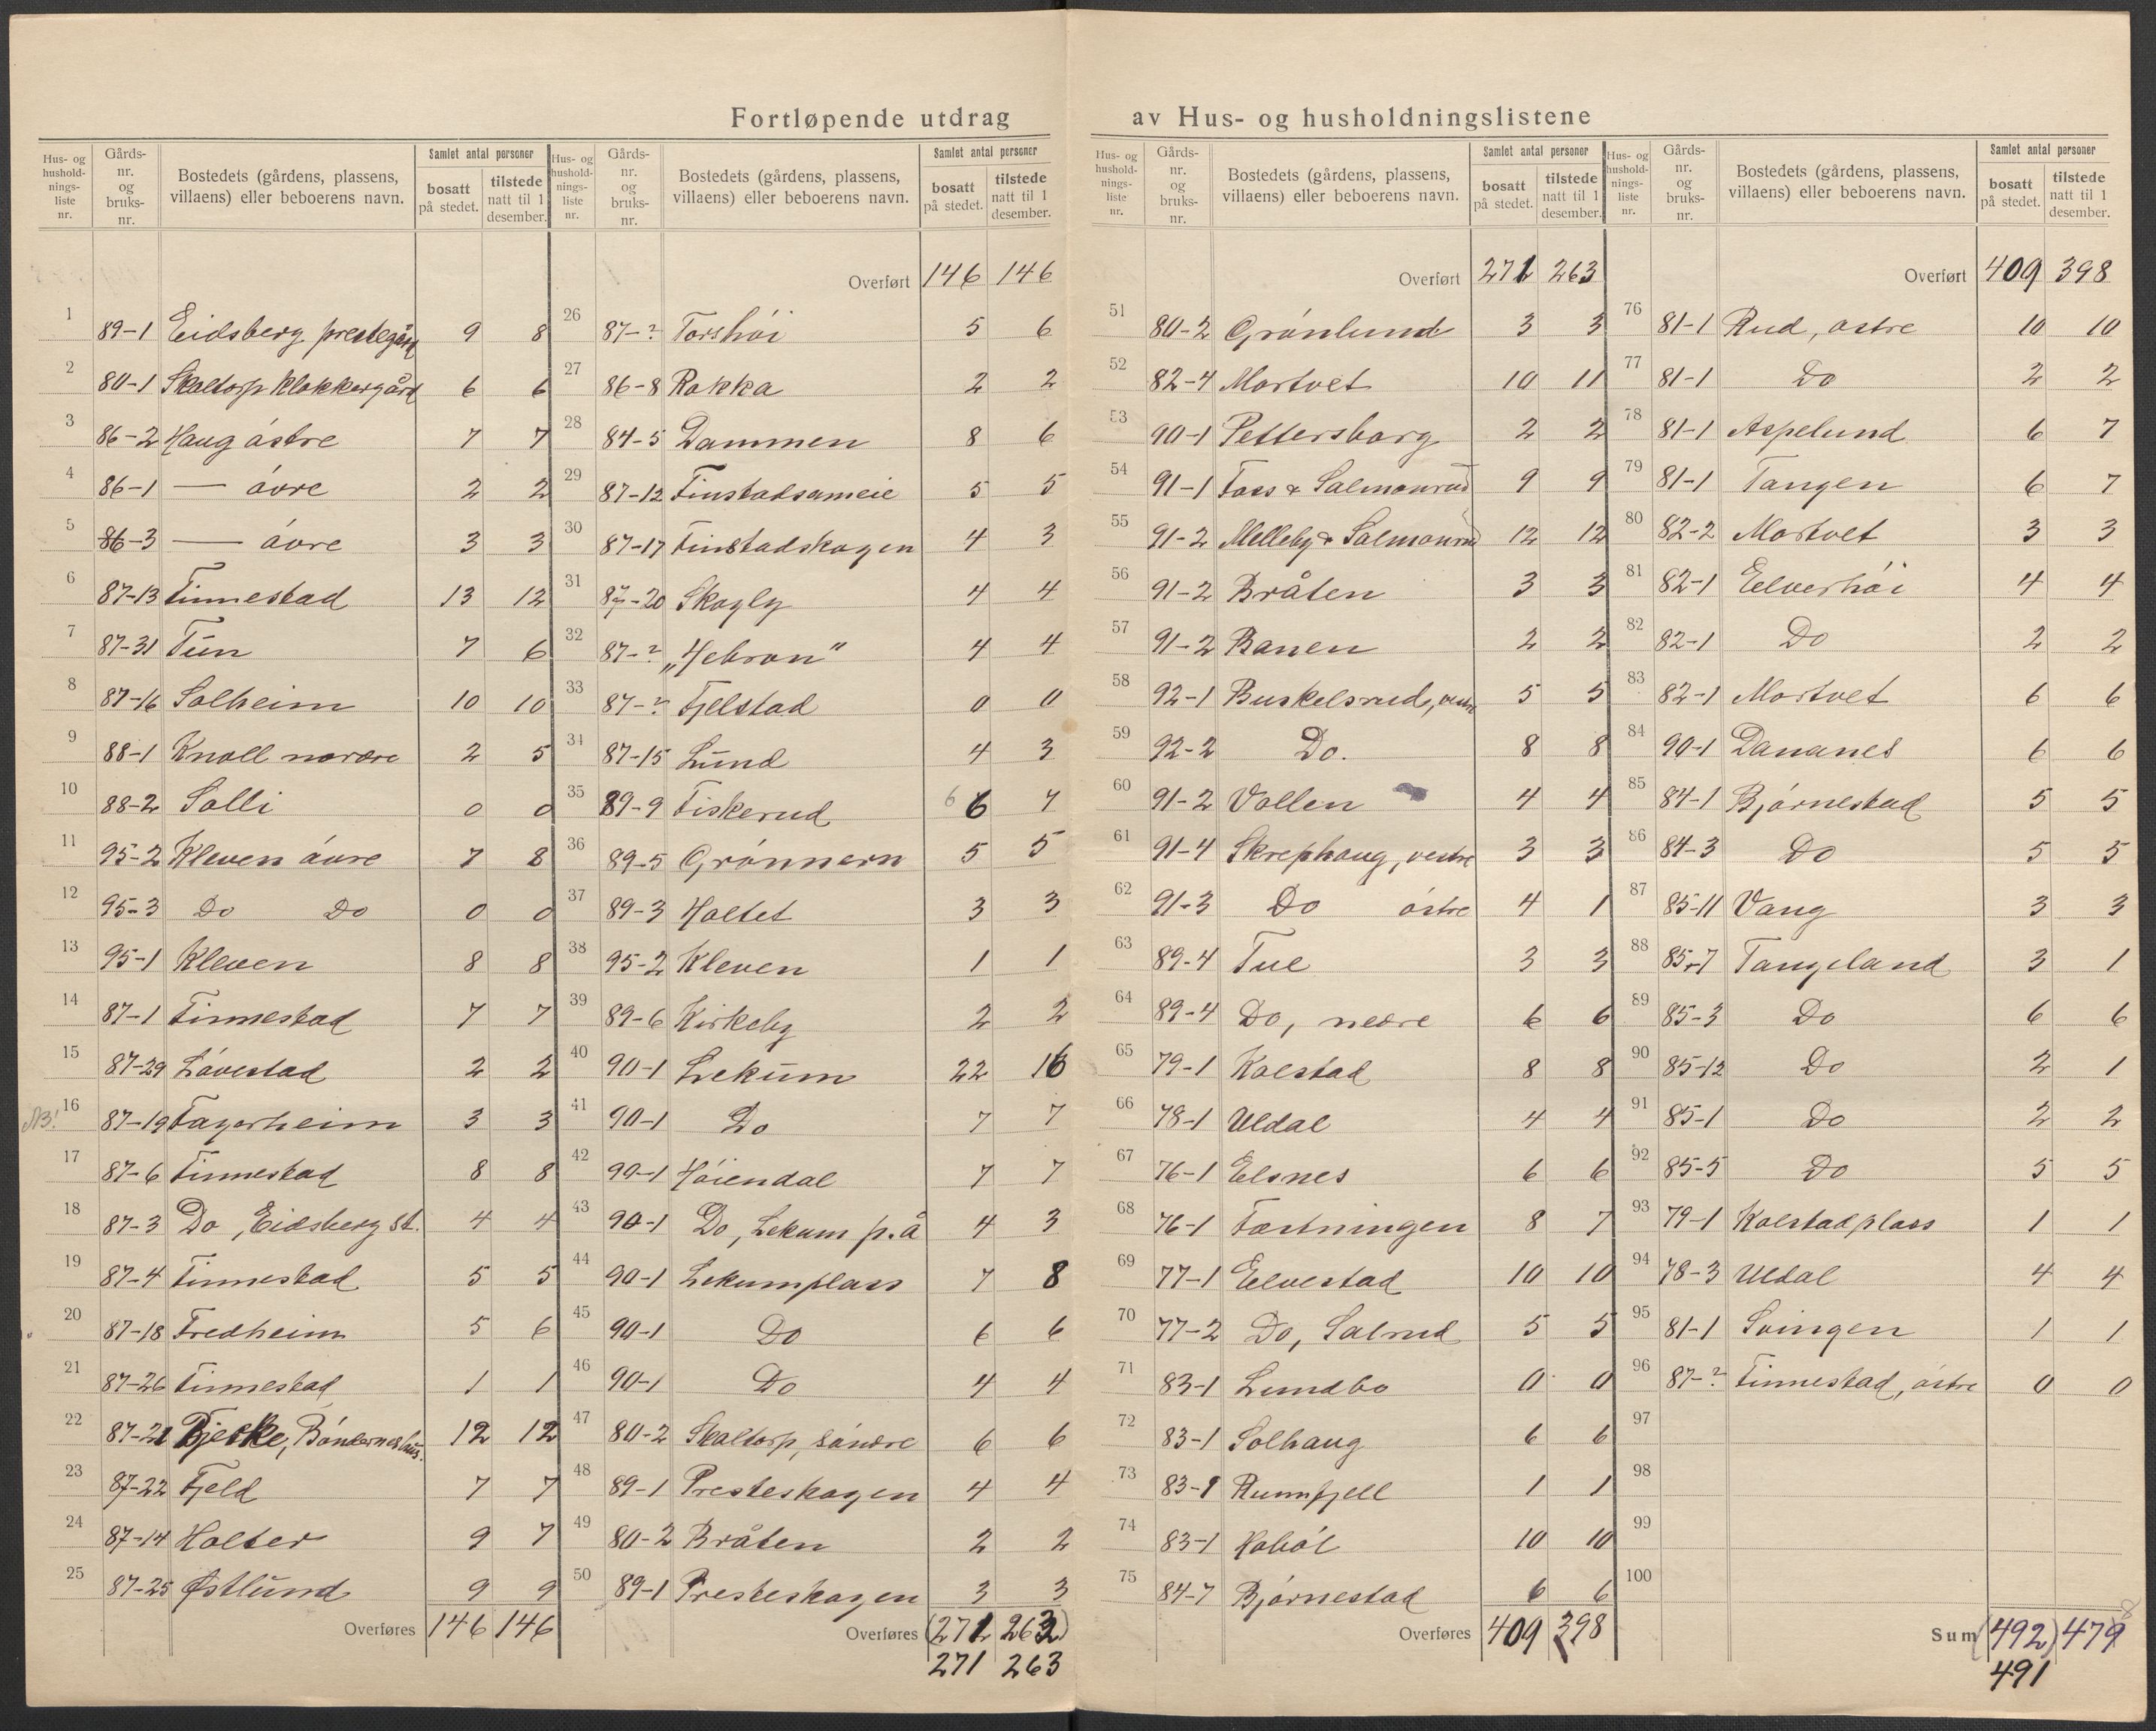 Fortløpende utdrag av Hus- og husholdningslistene
Hus- og hushold-nings-liste nr. | Gårds-nr. og bruks-nr. | Bostedets (gårdens, plassens, villaens) eller beboerens navn. | Samlet antal personer | bosatt på stedet. | tilstede natt til 1 desember.
1 89-1 Eidsberg prestegård 9 8
2 80-1 Skaltorp klokkergård 6 6
3 86-2 Haug óstre 7 7
4 86-1 — óvre 2 2
5 86-3 — óvre 3 3
6 87-13 Finnestad 13 12
7 87-31 Tun 7 6
8 87-16 Solheim 10 10
9 88-1 Knoll nordre 2 5
10 88-2 Solli 0 0
11 95-2 Kleven óvre 7 8
12 95-3 Do Do 0 0
13 95-1 Kleven 8 8
14 87-1 Finnestad 7 7
15 87-29 Lóvestad 2 2
NB! 16 87-19 Fagerheim 3 3
17 87-6 Finnestad 8 8
18 87-3 Do, Eidsberg st. 4 4
19 87-4 Finnestad 5 5
20 87-18 Fredheim 5 6
21 87-26 Finnestad 1 1
22 87-21 Bóndernes hus. 12 12
23 87-22 Fjeld 7 7
24 87-14 Holter 9 7
25 87-25 Østlund 9 9
Overføres 146 146
Hus- og hushold-nings-liste nr. | Gårds-nr. og bruks-nr. | Bostedets (gårdens, plassens, villaens) eller beboerens navn. | Samlet antal personer | bosatt på stedet. | tilstede natt til 1 desember.
Overført 146 146
26 87-? Torshói 5 6
27 86-8 Rokka 2 2
28 84-5 Dammen 8 6
29 87-12 Finstadsameie 5 5
30 87-17 Finstadskogen 4 3
31 87-20 Skogly 4 4
32 87-? „Hebron" 4 4
33 87-? Fjelstad 0 0
34 87-15 Lund 4 3
35 89-9 Fiskerud 6 6 4
36 89-5 Grónnern 5 5
37 89-3 Holtet 3 3
38 95-2 Kleven 1 1
39 89-6 Kirkeby 2 2
40 90-1 Lekum 22 16
41 90-1 Do 7 7
42 90-1 Hóiendal 7 7
43 90-1 Do, Lekum p.å 4 3
44 90-1 Lekumplass 7 8
45 90-1 Do 6 6
46 90-1 Do 4 4
47 80-2 Skaltorp, sóndre 6 6
48 89-1 Presteskogen 4 4
49 80-2 Bråten 2 2
50 89-1 Presteskogen 3 3
Overføres (271 263)
271 263
Hus- og hushold-nings-liste nr. | Gårds-nr. og bruks-nr. | Bostedets (gårdens, plassens, villaens) eller beboerens navn. | Samlet antal personer | bosatt på stedet. | tilstede natt til 1 desember.
Overført 271 263
51 80-2 Grónlund 3 3
52 82-4 Mortvet 10 11
53 90-1 Pettersborg 2 2
54 91-1 Foss & Salmonrud 9 9
55 91-2 Melleby & Salmonrud 12 12
56 91-2 Bråten 3 3
57 91-2 Banen 2 2
58 92-1 Buskelsrud, vestre 5 5
59 92-2 Do. 8 8
60 91-2 Vollen 4 4
61 91-4 Skrephaug, vestre 3 3
62 91-3 Do óstre 4 1
63 89-4 Tue 3 3
64 89-4 Do, nedre 6 6
65 79-1 Kolstad 8 8
66 78-1 Uldal 4 4
67 76-1 Elsnes 6 6
68 76-1 Festningen 8 7
69 77-1 Eelvestad 10 10
70 77-2 Do, Solrud 5 5
71 83-1 Lundbo 0 0
72 83-1 Solhaug 6 6
73 83-1 Runnfjell 1 1
74 83-1 Hoból 10 10
75 84-7 Bjórnestad 6 6
Overføres 409 398
Hus- og hushold-nings-liste nr. | Gårds-nr. og bruks-nr. | Bostedets (gårdens, plassens, villaens) eller beboerens navn. | Samlet antal personer | bosatt på stedet. | tilstede natt til 1 desember.
Overført 409 398
76 81-1 Rud, ostre 10 10
77 81-1 Do 2 2
78 81-1 Aspelund 6 7
79 81-1 Tangen 6 7
80 82-2 Mortvet 3 3
81 82-1 Eelverhói 4 4
82 82-1 Do 2 2
83 82-1 Mortvet 6 6
84 90-1 Dananes 6 6
85 84-1 Bjórnestad 5 5
86 84-3 Do 5 5
87 85-11 Vang 3 3
88 85-7 Tangeland 3 1
89 85-3 Do 6 6
90 85-12 Do 2 1
91 85-1 Do 2 2
92 85-5 Do 5 5
93 79-1 Kolstadplass 1 1
94 78-3 Uldal 4 4
95 81-1 Svingen 1 1
96 87-? Finnestad, óstre 0 0
97
98
99
100
Sum (492) 479 8
491